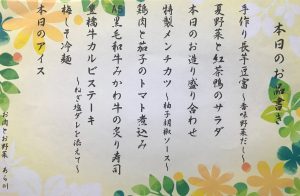 本日のお品書き
手作り長芋豆富～香味野菜だし～
夏野菜と紅茶鴨のサラダ
本日のお造り盛り合わせ
特製メンチカツ～柚子胡椒ソース～
鶏肉と茄子のトマト煮込み
A5黒毛和牛みかわ牛の炙り寿司
豊橋牛カルビステーキ
～ねぎ塩ダレを添えて～
梅しそ冷麺
本日のアイス
お肉とお野菜 あら川